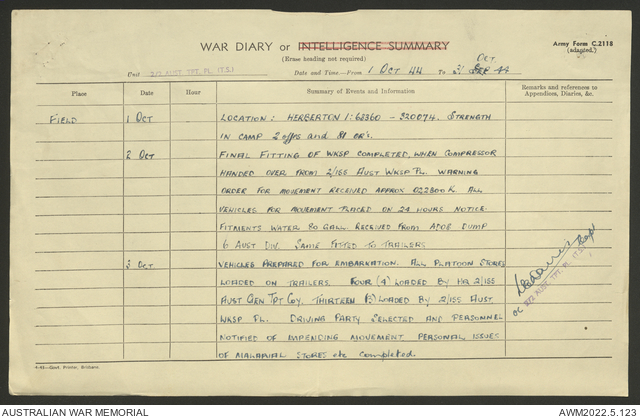 WAR DIARY or INTELLIGENCE SUMMARY
Army Form C.2118
(adapted.)
(Erase heading not required)
Oct.
Unit 2/2 AUST. TPT. PL. (T.S.)
Date and Time—From 1 Oct 44 To 31 44
Place
Date
Hour
Summary of Events and Information
Remarks and references to
Appendices, Diaries, &c.
FIELD
1 Oct
LOCATION: HERBERTON 1:63360 - 320074. STRENGTH
IN CAMP 2 offrs and 81 OR's.
2 Oct
FINAL FITTING OF WKSP COMPLETED, WHEN COMPRESSOR
HANDED OVER FROM 2/155 AUST WKSP PL. WARNING
ORDER FOR MOVEMENT RECEIVED APPROX 022800 K. ALL
VEHICLES FOR MOVEMENT PLACED ON 24 HOURS NOTICE.
FITMENTS WATER 80 GALL RECEIVED FROM ADOE DUMP
6 AUST DIV. SAME FITTED TO TRAILERS
3 Oct
VEHICLES PREPARED FOR EMBARKATION. ALL PLATOON STORES
LOADED ON TRAILERS. FOUR (4) LOADED BY HQ 2/155
AUST GEN TPT COY. THIRTEEN (13) LOADED BY 2/155 AUST.
WKSP PL. DRIVING PARTY SELECTED AND PERSONNEL
NOTIFIED OF IMPENDING MOVEMENT. PERSONAL ISSUES
OF MALARIAL STORES etc completed.
Capt
OC 2/2 AUST. TPT. PL. (T.S.)
4-43—Govt. Printer, Brisbane.
AUSTRALIAN WAR MEMORIAL
AWM2022.5.123